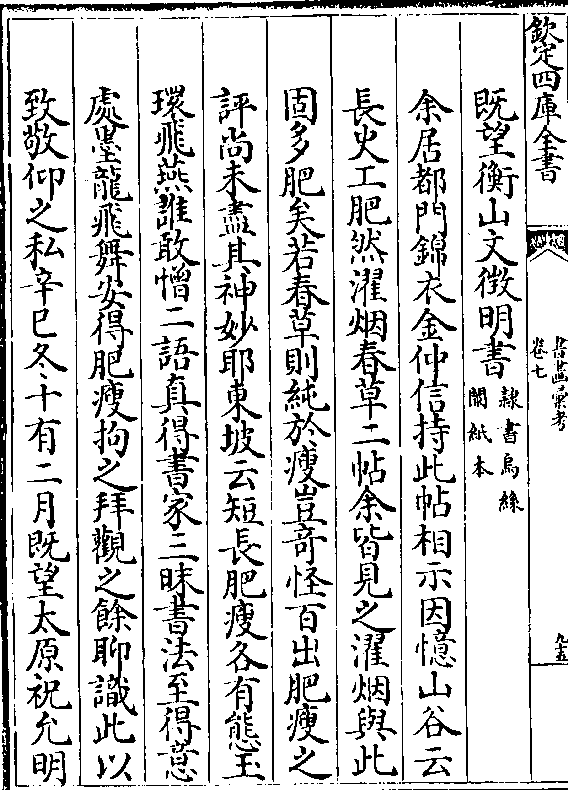 欽定四庫全書
書畫彙考
卷七
九五
既望衡山文徴明書
隷書烏絲
闌紙本
余居都門錦衣金仲信持此帖相示因憶山谷云
長史工肥然濯烟春草二帖余皆見之濯烟與此
固多肥矣若春草則純於瘦豈竒怪百出肥瘦之
評尚未盡其神妙耶東坡云短長肥瘦各有態玉
環飛燕誰敢憎二語真得書家三昧書法至得意
處墨龍飛舞安得肥瘦拘之拜觀之餘聊識此以
致敬仰之私辛巳冬十有二月既望太原祝允明